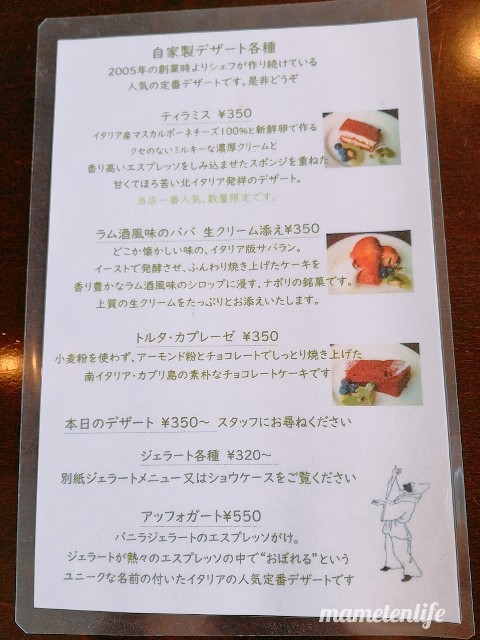 自家製デザート各種
2005年の創業時よりシェフが作り続けている
人気の定番デザートです。是非どうぞ
ティラミス ¥350
イタリア産マスカルポーネチーズ100%と新鮮卵で作る
クセのないミルキーな濃厚クリームと
香り高いエスプレッソをしみ込ませたスポンジを重ねた
甘くてほろ苦い北イタリア発祥のデザート。
当店一番人気。数量限定です。
ラム酒風味のババ 生クリーム添え¥350
どこか懐かしい味の、イタリア版サバラン。
イーストで発酵させ、ふんわり焼き上げたケーキを
香り豊かなラム酒風味のシロップに浸す、ナポリの銘菓です。
上質の生クリームをたっぷりとお添えいたします。
トルタ・カプレーゼ ¥350
小麦粉を使わず、アーモンド粉とチョコレートでしっとり焼き上げた
南イタリア・カプリ島の素朴なチョコレートケーキです
本日のデザート ¥350~ スタッフにお尋ねください
ジェラート各種 ¥320~
別紙ジェラートメニュー又はショウケースをご覧ください
アッフォガート¥550
バニラジェラートのエスプレッソがけ。
ジェラートが熱々のエスプレッソの中で"おぼれる"という
ユニークな名前の付いたイタリアの人気定番デザートです
mametenlife